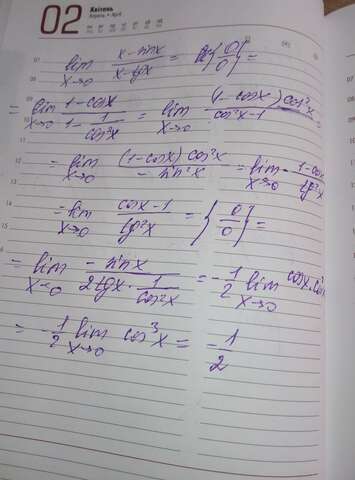 02 Квітень
Апрель • April
07 lim x→0 (x - sinx)/(x - tgx) = {0/0} =
= lim x→0 (1 - cosx)/(1 - 1/cos²x) = lim x→0 (1 - cosx)cos²x/(cos²x - 1) =
= lim x→0 (1 - cosx)cos²x/(-sin²x) = lim x→0 - (1 - cos
= lim x→0 (cosx - 1)/(tg²x) = {0/0} =
= lim x→0 (-sinx)/(2tgx · 1/cos²x) = -1/2 lim x→0 cosx · cos
= -1/2 lim x→0 cos³x = -1/2